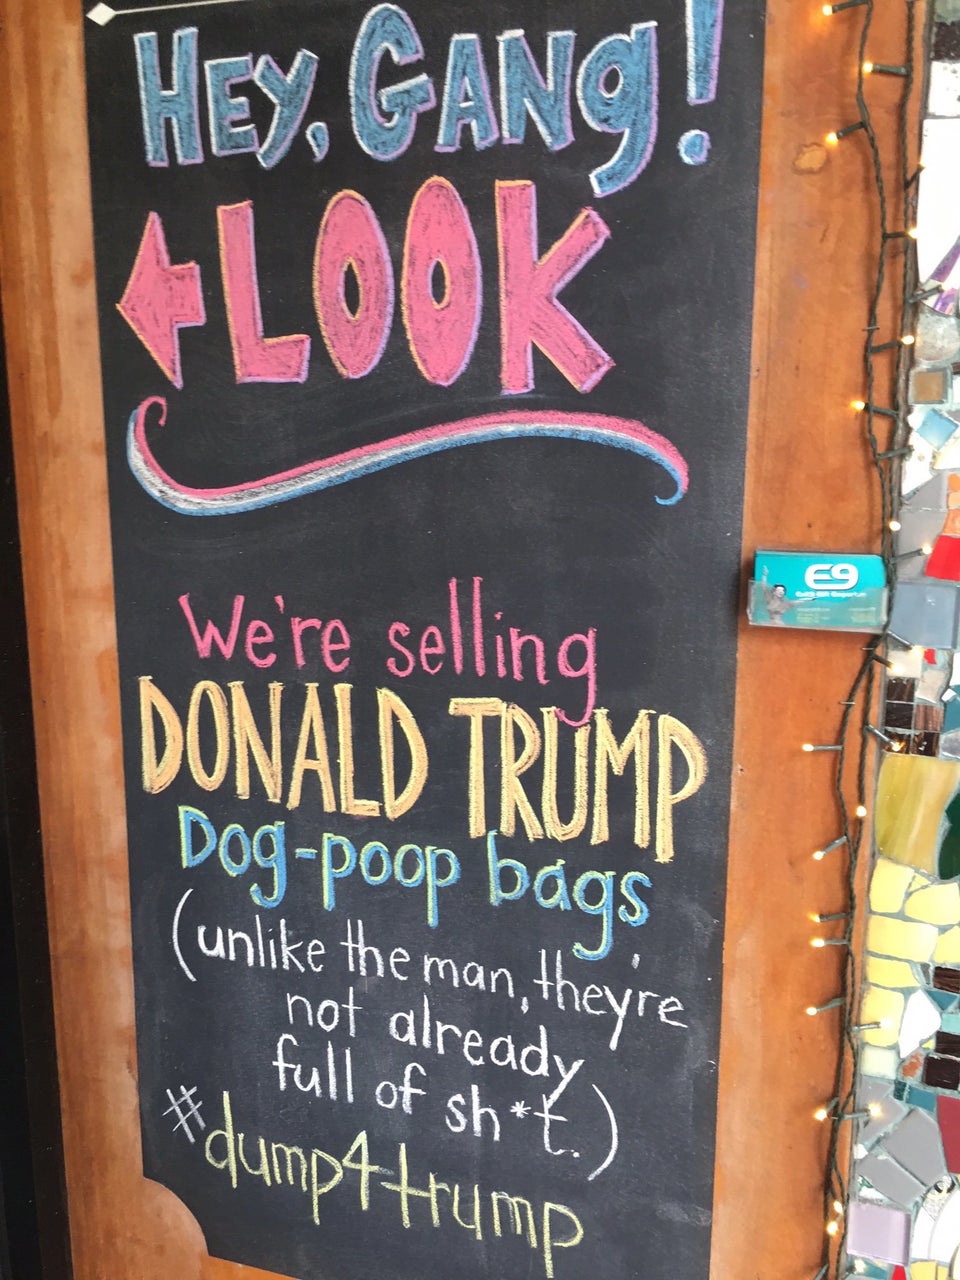 HEY, GANG!
LOOK
We're selling
DONALD TRUMP
Dog-poop bags
(unlike the man, they're
not already
full of sh*t.)
#dump4trump
E9